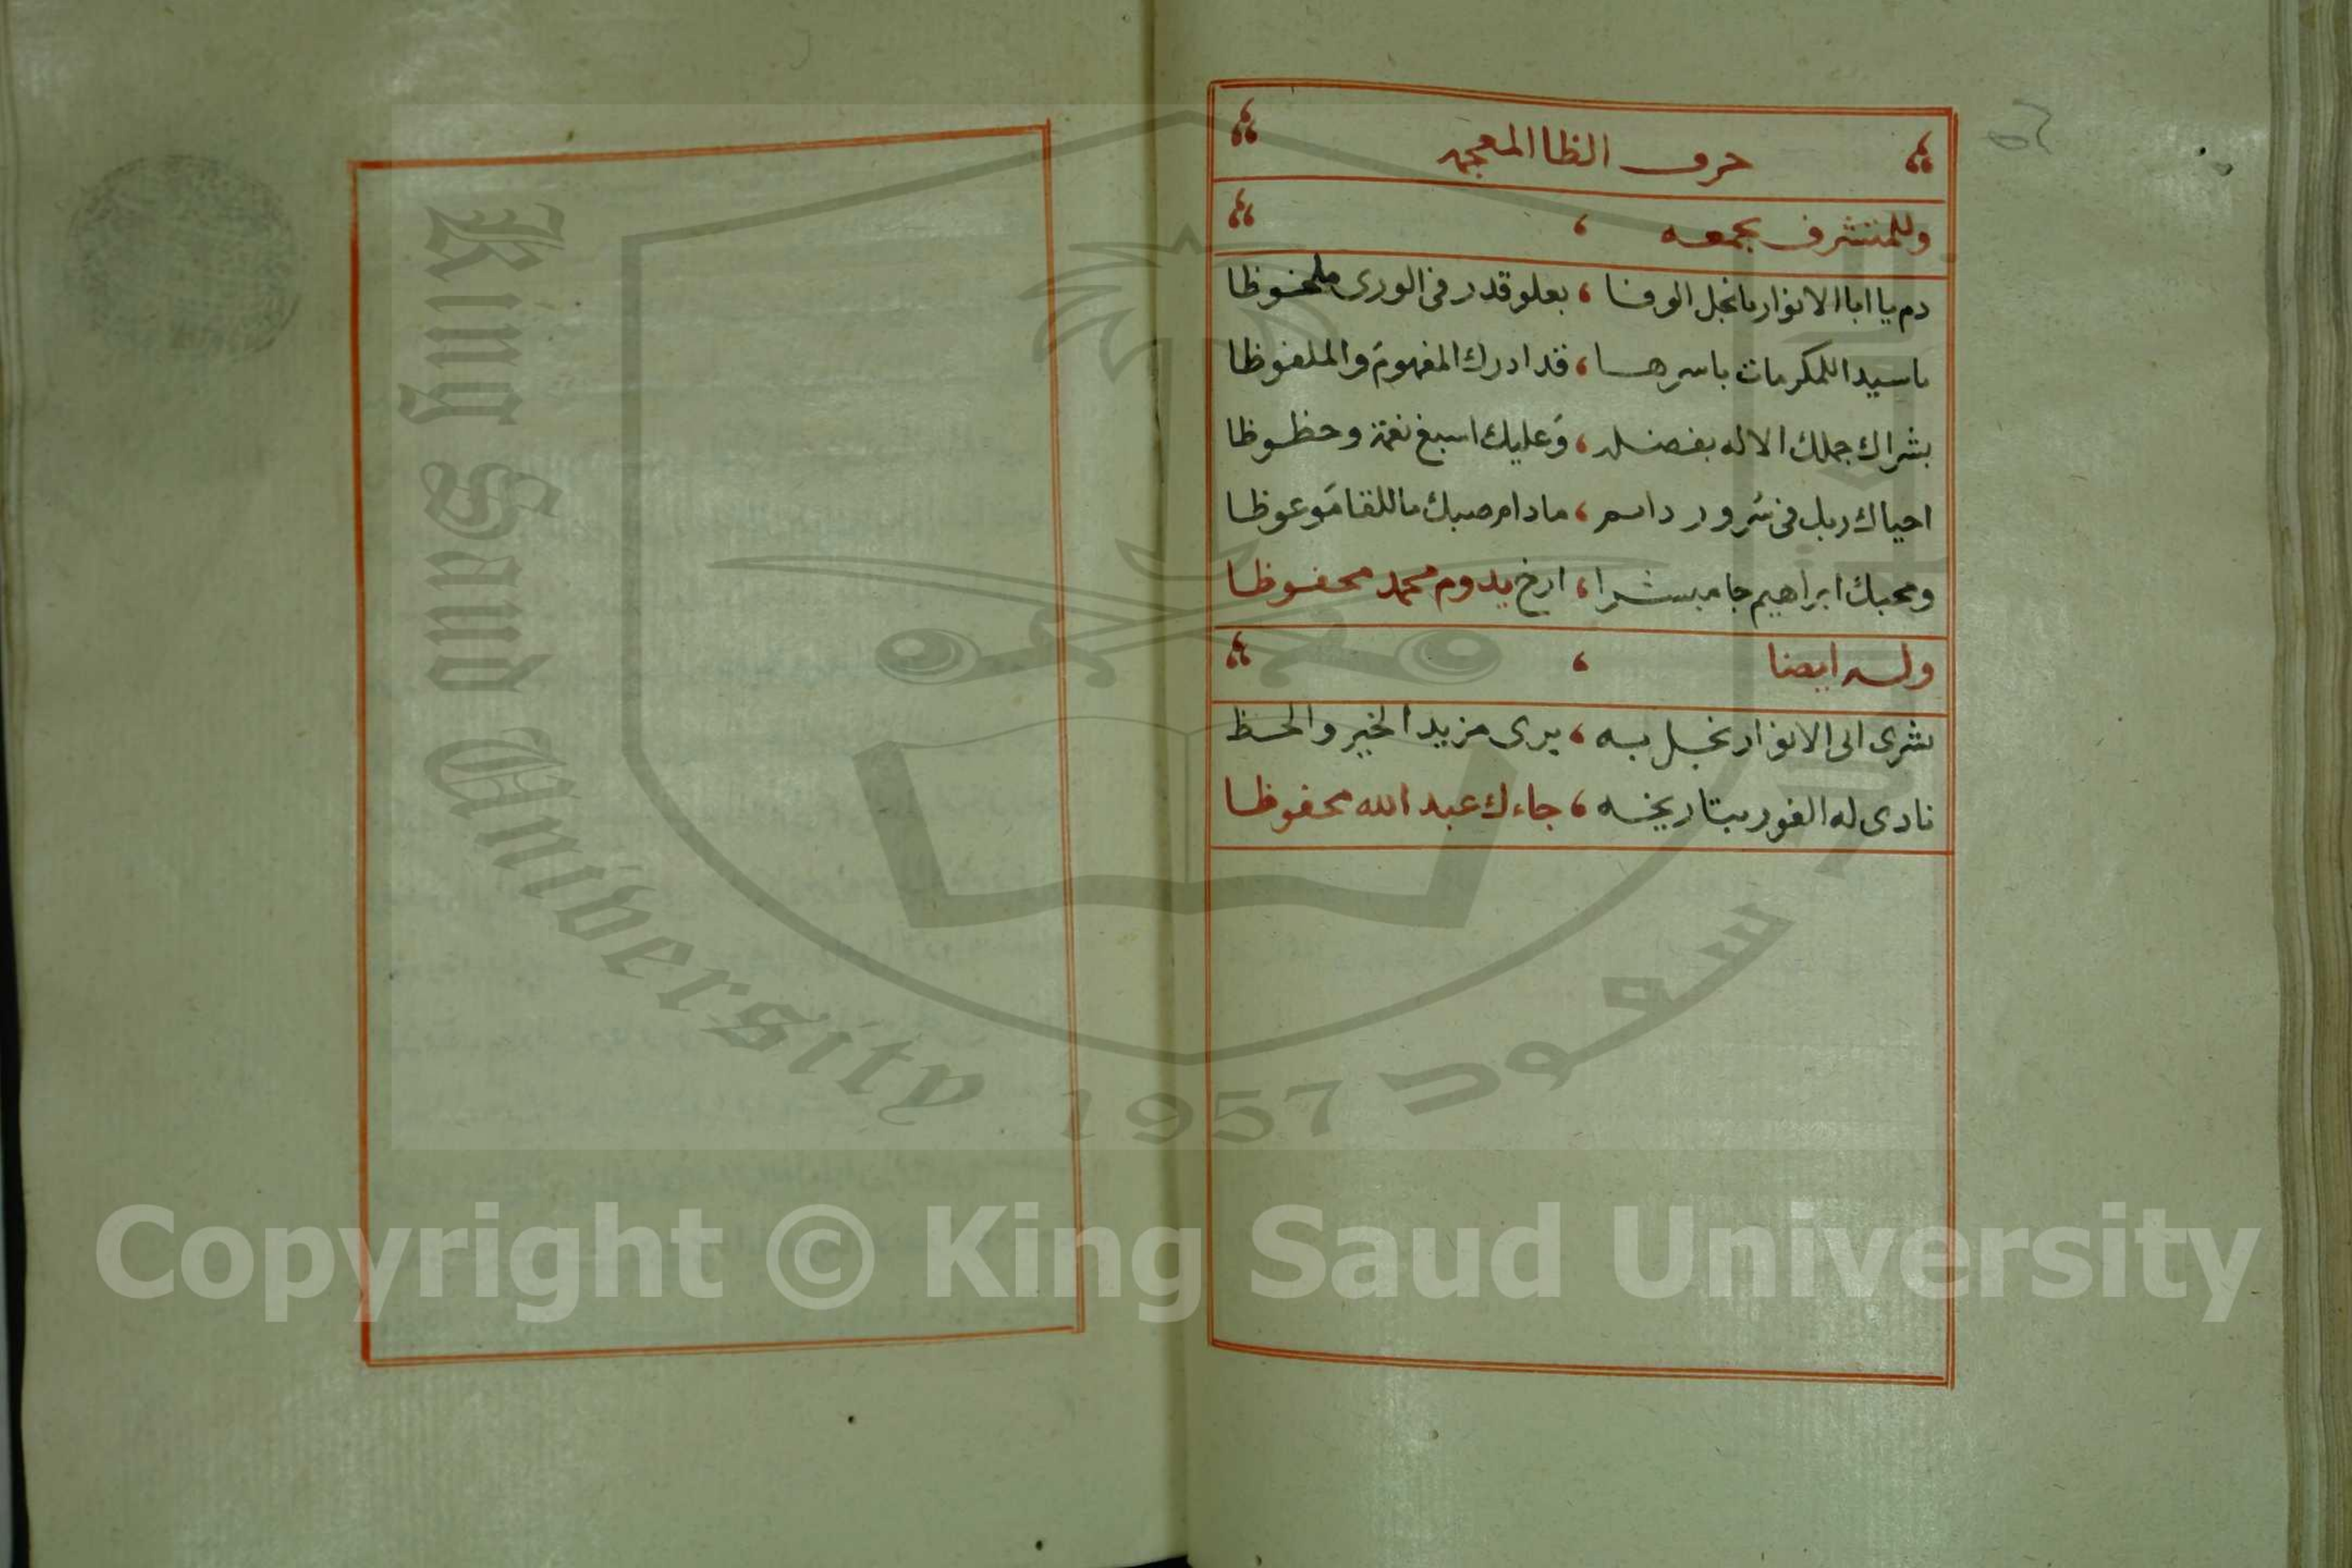 حرف الظا المعجمه
وللمتشرف بجمعه
دم يا ابا الانوار يا نجل الوفا ، بعلو قدر فى الورى ملحوظا
يا سيدا للمكرمات باسرها ، قد ادرك المفهوم والملفوظا
بشراك جملك الاله بفضله ، وعليك اسبغ نعمة وحظوظا
احياك ربك فى سرور دايم ، ما دام صبك باللقا موعوظا
ومحبك ابراهيم جا مبشرا ، ارخ يدوم محمد محفوظا
وله ايضا
بشرى ابى الانوار نجل به ، يرى مزيد الخير والحظ
نادى له الفور بتاريخه ، جاءك عبد الله محفوظا
King Saud University
1957
سعود
Copyright © King Saud University